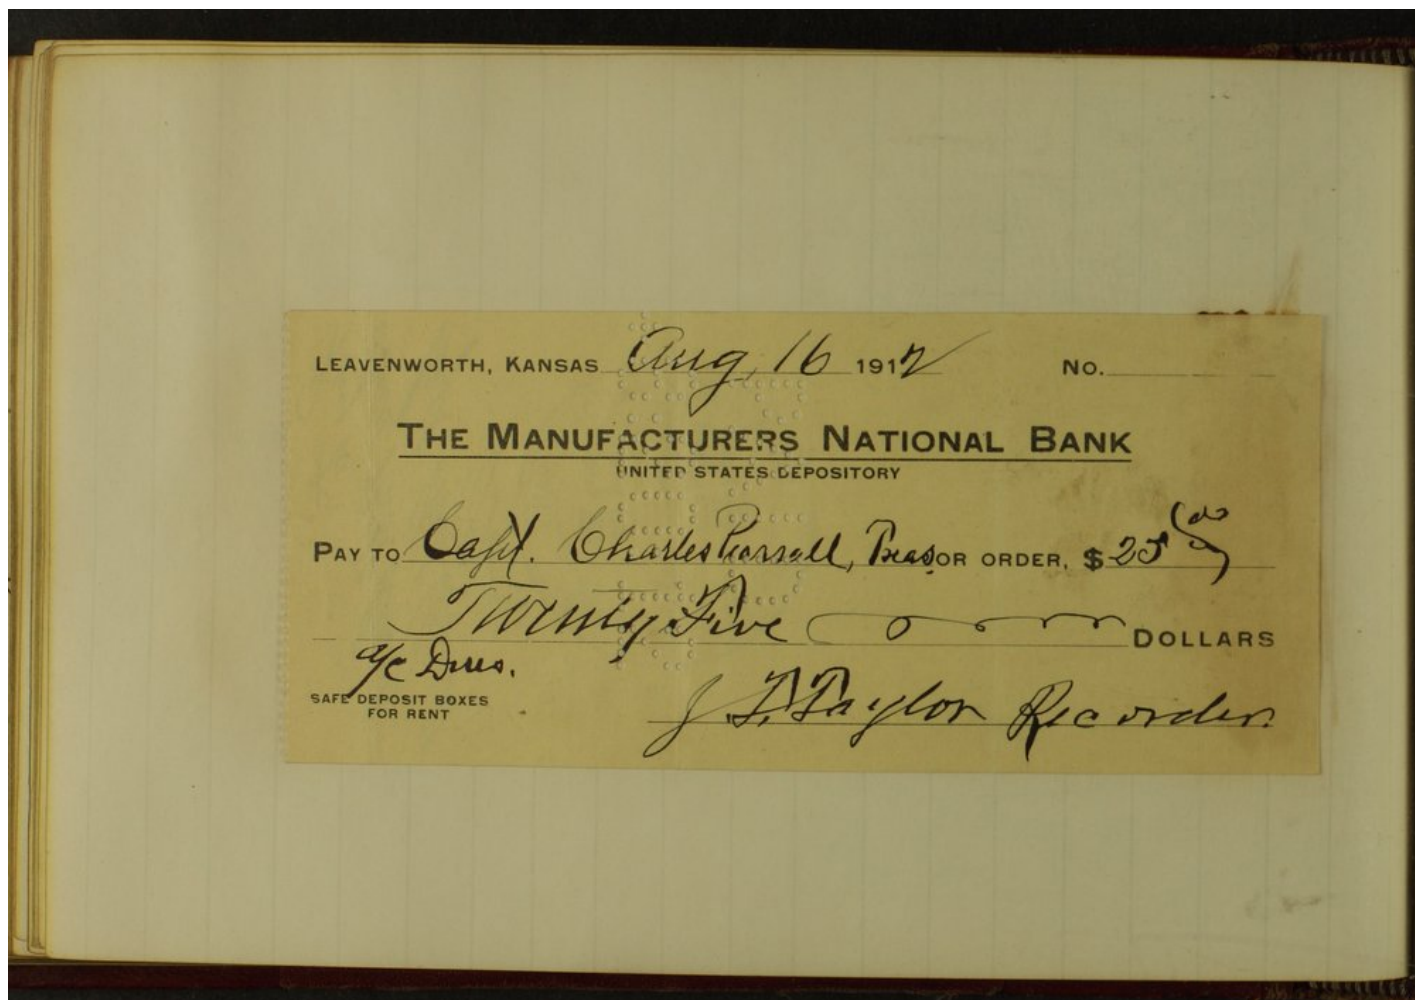 LEAVENWORTH, KANSAS Aug, 16 1912 NO.
THE MANUFACTURERS NATIONAL BANK
UNITED STATES DEPOSITORY
PAY TO Capt. Charles Pearsall, Treas OR ORDER, $ 25 00
Twenty Five DOLLARS
a/c Dues.
SAFE DEPOSIT BOXES
FOR RENT
J. T. Taylor Recorder